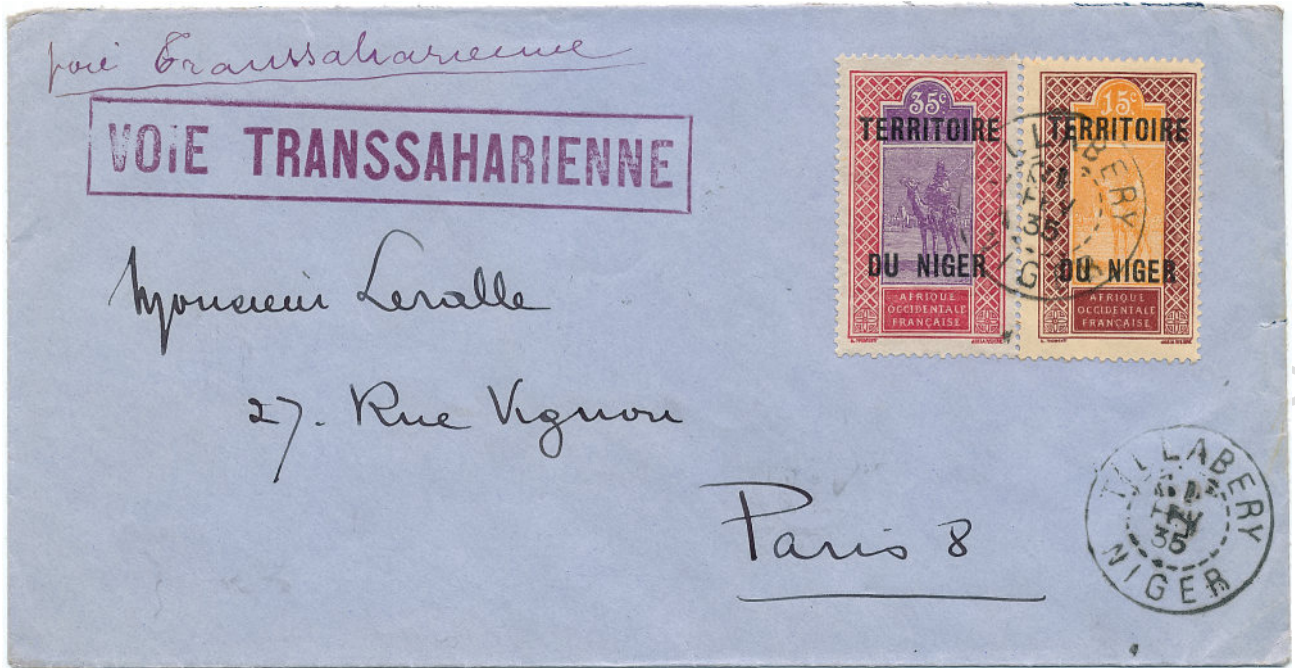 voie Transsaharienne
VOIE TRANSSAHARIENNE
35c
TERRITOIRE
DU NIGER
AFRIQUE
OCCIDENTALE
FRANÇAISE
15c
TERRITOIRE
DU NIGER
AFRIQUE
OCCIDENTALE
FRANÇAISE
Monsieur
27. Rue Vignon
Paris 8
TILLABERY
35
NIGER